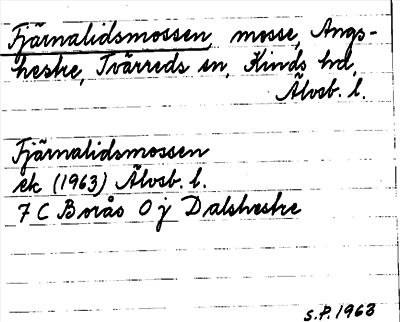 Fjärnalidsmossen, mosse, Ängs-
heske, Tvärreds sn, Kinds hd,
Älvsb. l.
Fjärnalidsmossen
ek (1963) Älvsb. l.
7 C Borås 0 j Dalsheske
S.P. 1963